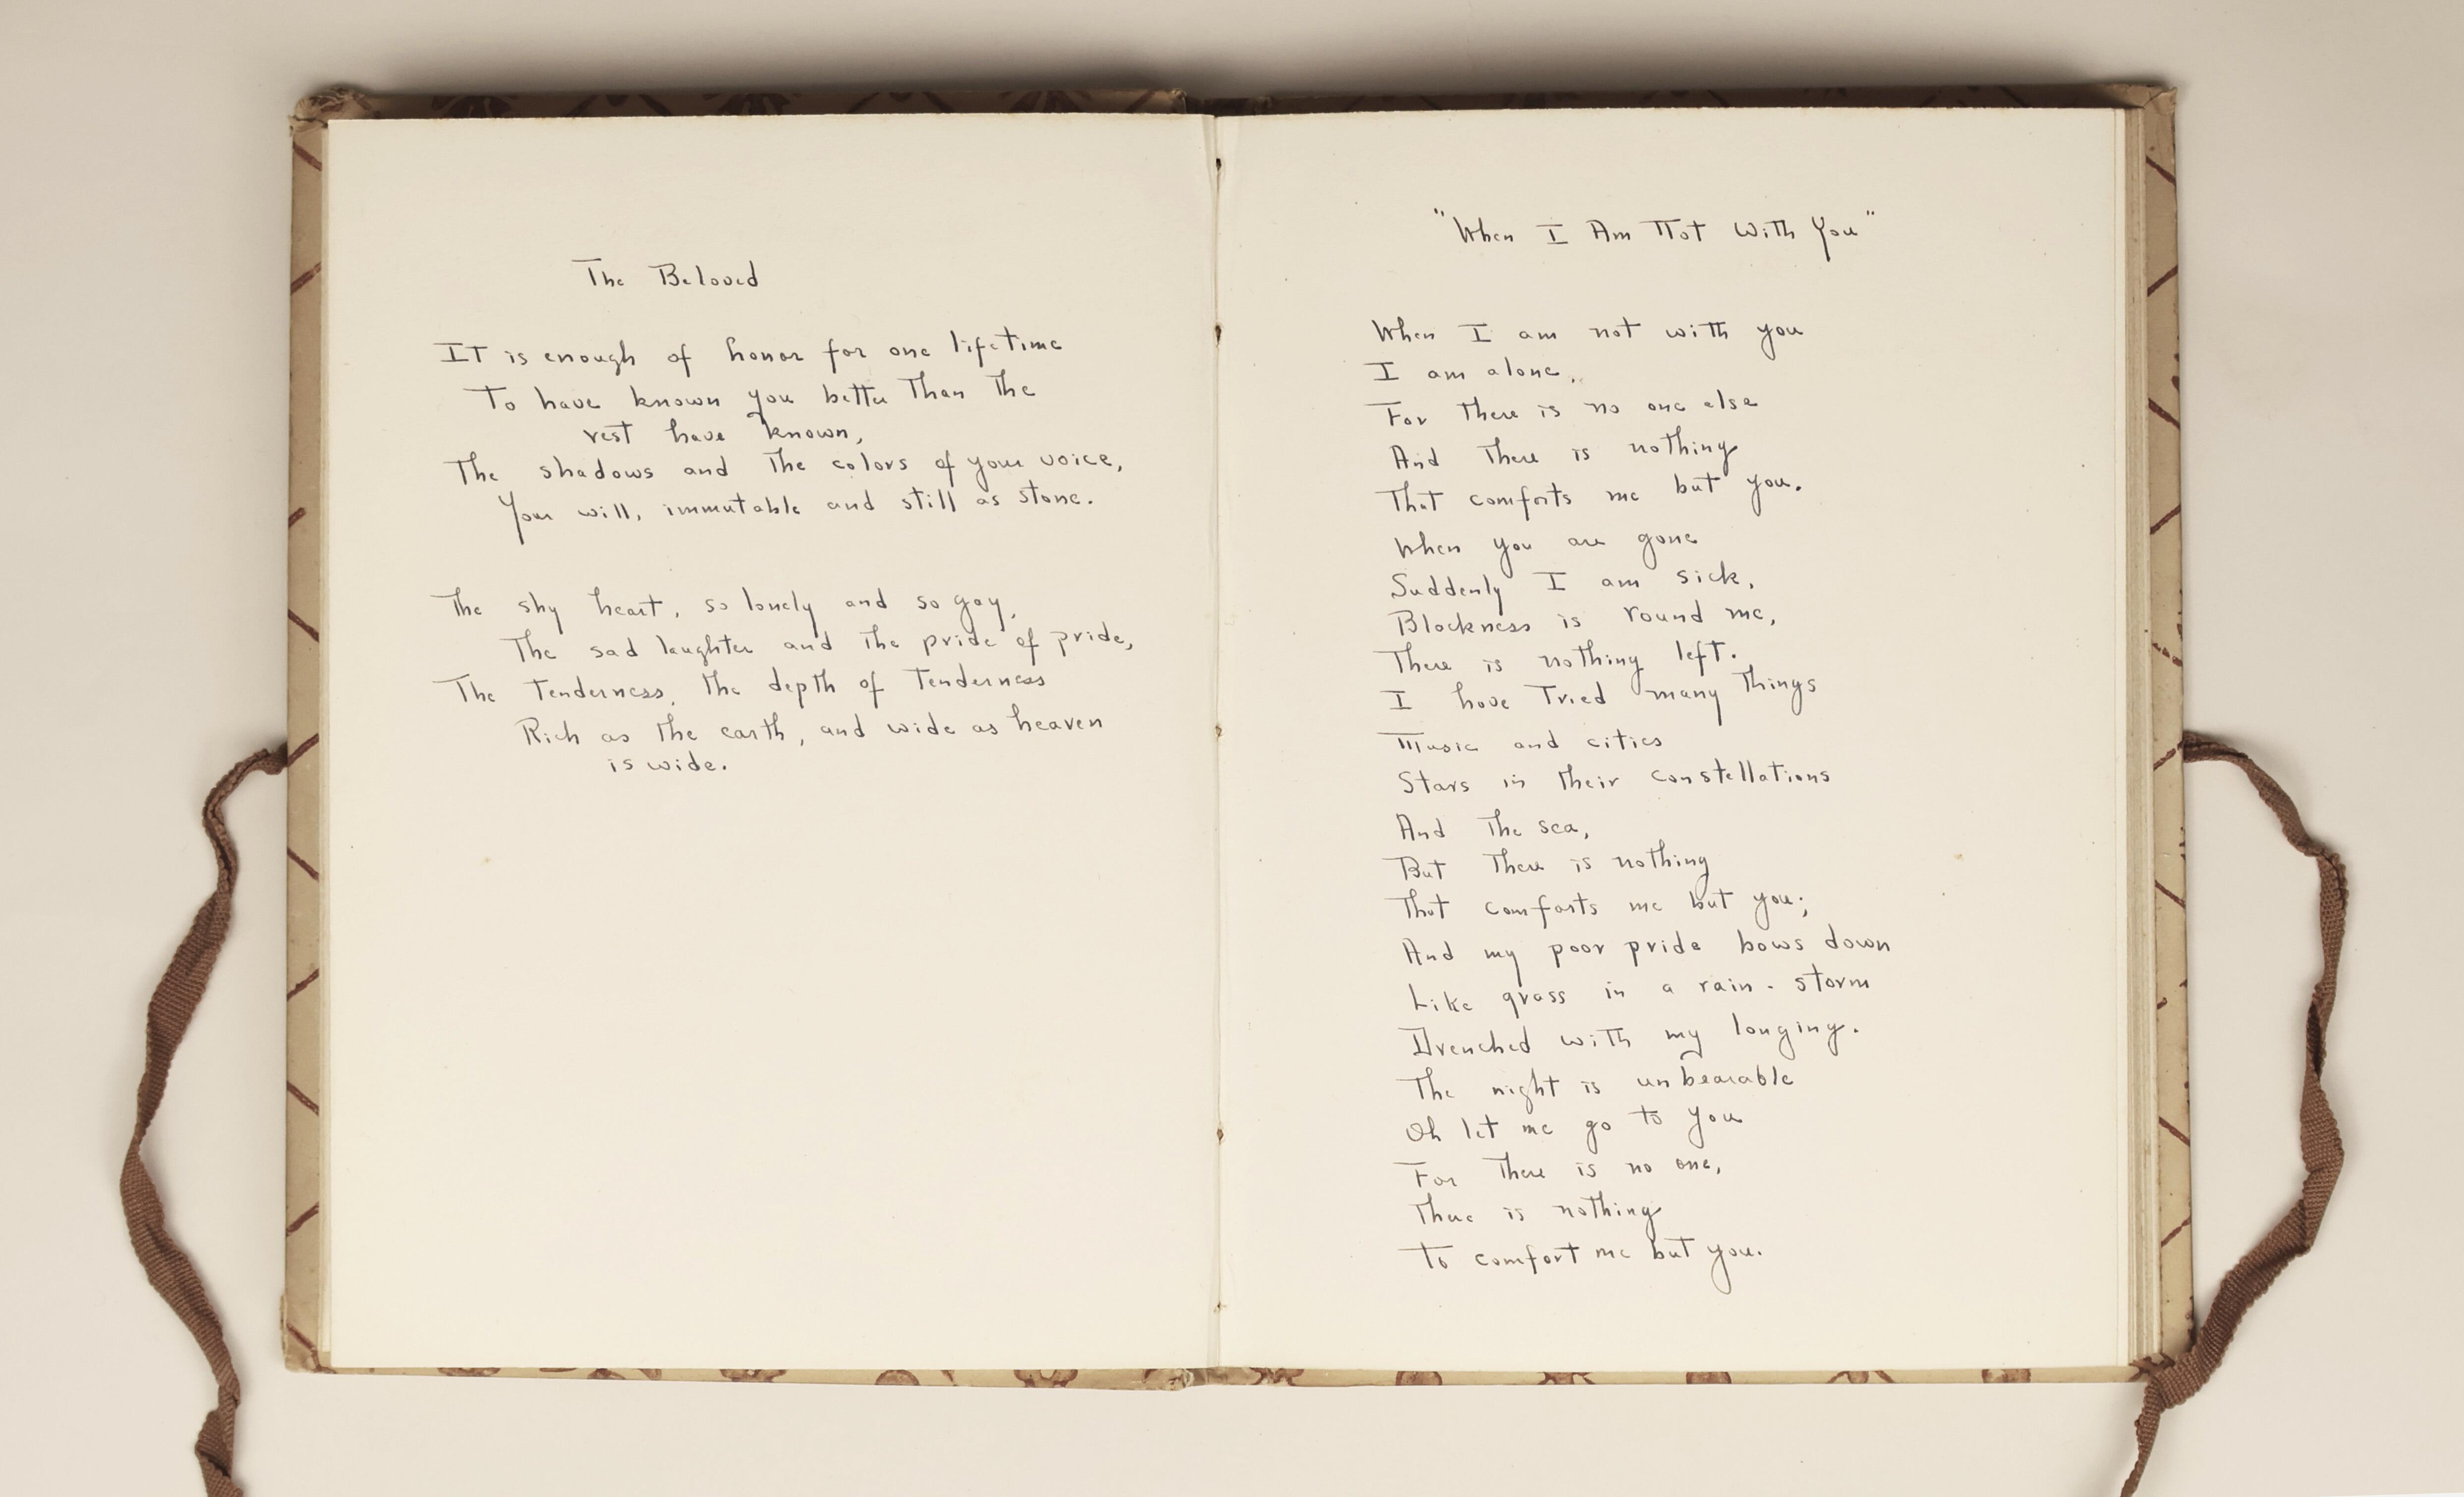 The Beloved
It is enough of honor for one lifetime
To have known you better than the
rest have known,
The shadows and the colors of your voice,
Your will, immutable and still as stone.
The shy heart, so lonely and so gay,
The sad laughter and the pride of pride,
The tenderness, the depth of tenderness
Rich as the earth, and wide as heaven
is wide.
"When I Am Not With You"
When I am not with you
I am alone,
For there is no one else
And there is nothing
That comforts me but you.
When you are gone
Suddenly I am sick,
Blackness is round me,
There is nothing left.
I have tried many things
Music and cities
Stars in their constellations
And the sea,
But there is nothing
That comforts me but you;
And my poor pride bows down
Like grass in a rain-storm
Drenched with my longing.
The night is unbearable
Oh let me go to you
For there is no one,
There is nothing
To comfort me but you.